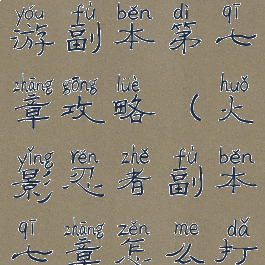 yóu fù běn dì qī
游副本第七
zhāng gōng lüè huǒ
章攻略（火
yǐng rěn zhě fù běn
影忍者副本
qī zhāng zěn me dǎ
七章怎么打